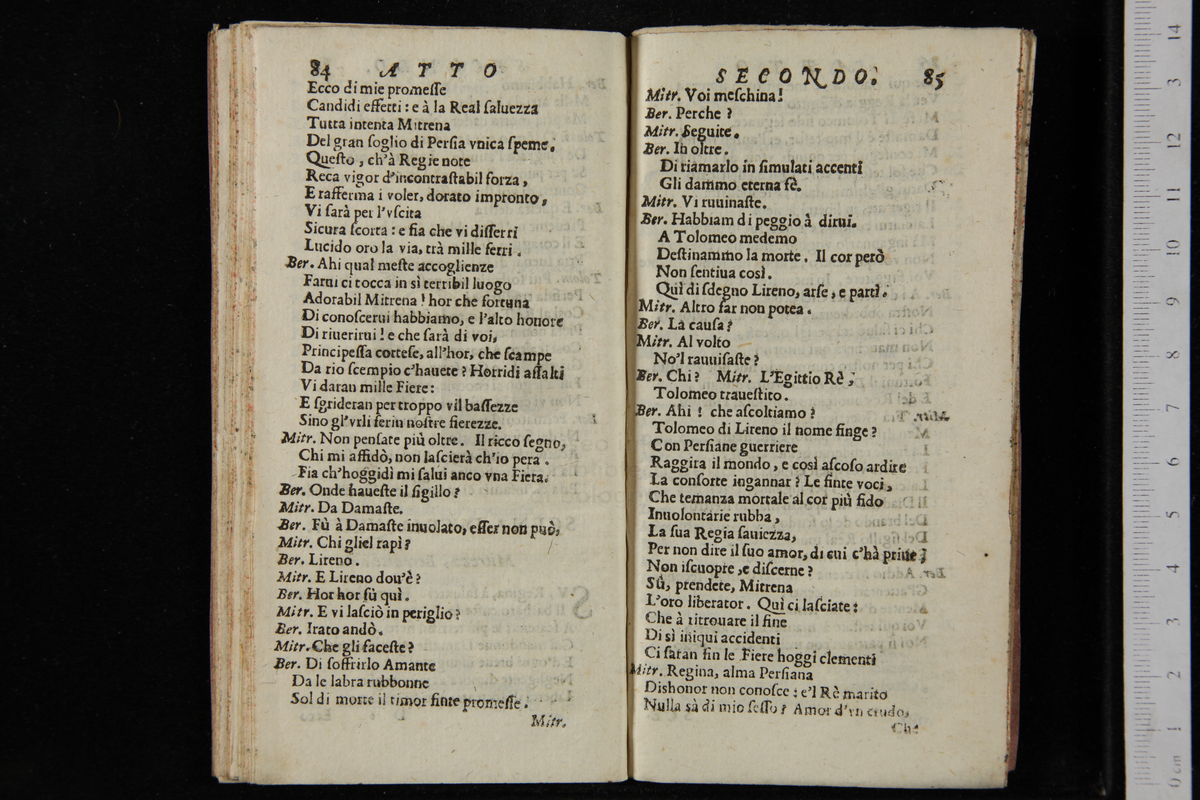 84 ATTO
Ecco di mie promeſſe
Candidi effetti: e à la Real ſaluezza
Tutta intenta Mitrena
Del gran ſoglio di Perſia vnica ſpeme.
Queſto, ch'à Regie note
Reca vigor d'incontraſtabil forza,
E rafferma i voler, dorato impronto,
Vi ſarà per l'vſcita
Sicura ſcorta: e fia che vi diſſerri
Lucido oro la via, trà mille ferri.
Ber. Ahi qual meſte accoglienze
Farui ci tocca in sì terribil luogo
Adorabil Mitrena! hor che fortuna
Di conoſcerui habbiamo, e l'alto honore
Di riuerirui! e che ſarà di voi,
Principeſſa corteſe, all'hor, che ſcampe
Da rio ſcempio c'hauete? Horridi aſſalti
Vi daran mille Fiere:
E ſgrideran per troppo vil baſſezze
Sino gl'vrli ferin noſtre fierezze.
Mitr. Non penſate più oltre. Il ricco ſegno,
Chi mi affidò, non laſcierà ch'io pera.
Fia ch'hoggidì mi ſalui anco vna Fiera.
Ber. Onde haueſte il ſigillo?
Mitr. Da Damaſte.
Ber. Fù à Damaſte inuolato, eſſer non può,
Mitr. Chi gliel rapì?
Ber. Lireno.
Mitr. E Lireno dou'è?
Ber. Hor hor fù quì.
Mitr. E vi laſciò in periglio?
Ber. Irato andò.
Mitr. Che gli faceſte?
Ber. Di ſoffrirlo Amante
Da le labra rubbonne
Sol di morte il timor finte promeſſe.
Mitr.
SECONDO. 85
Mitr. Voi meſchina!
Ber. Perche?
Mitr. Seguite.
Ber. In oltre.
Di riamarlo in ſimulati accenti
Gli dammo eterna fè.
Mitr. Vi ruuinaſte.
Ber. Habbiam di peggio à dirui.
A Tolomeo medemo
Deſtinammo la morte. Il cor però
Non ſentiua così.
Quì di ſdegno Lireno, arſe, e partì.
Mitr. Altro far non potea.
Ber. La cauſa?
Mitr. Al volto
No'l rauuiſaſte?
Ber. Chi? Mitr. L'Egittio Rè,
Tolomeo traueſtito.
Ber. Ahi! che aſcoltiamo?
Tolomeo di Lireno il nome finge?
Con Perſiane guerriere
Raggira il mondo, e così aſcoſo ardire
La conſorte ingannar? Le finte voci,
Che temanza mortale al cor più fido
Inuolontarie rubba,
La ſua Regia ſauiezza,
Per non dire il ſuo amor, di cui c'hà priue,
Non iſcuopre, e diſcerne?
Sù, prendete, Mitrena
L'oro liberator. Quì ci laſciate:
Che à ritrouare il fine
Di sì iniqui accidenti
Ci ſaran fin le Fiere hoggi clementi
Mitr. Regina, alma Perſiana
Dishonor non conoſce: e'l Rè marito
Nulla sà di mio ſeſſo? Amor d'vn crudo,
Che